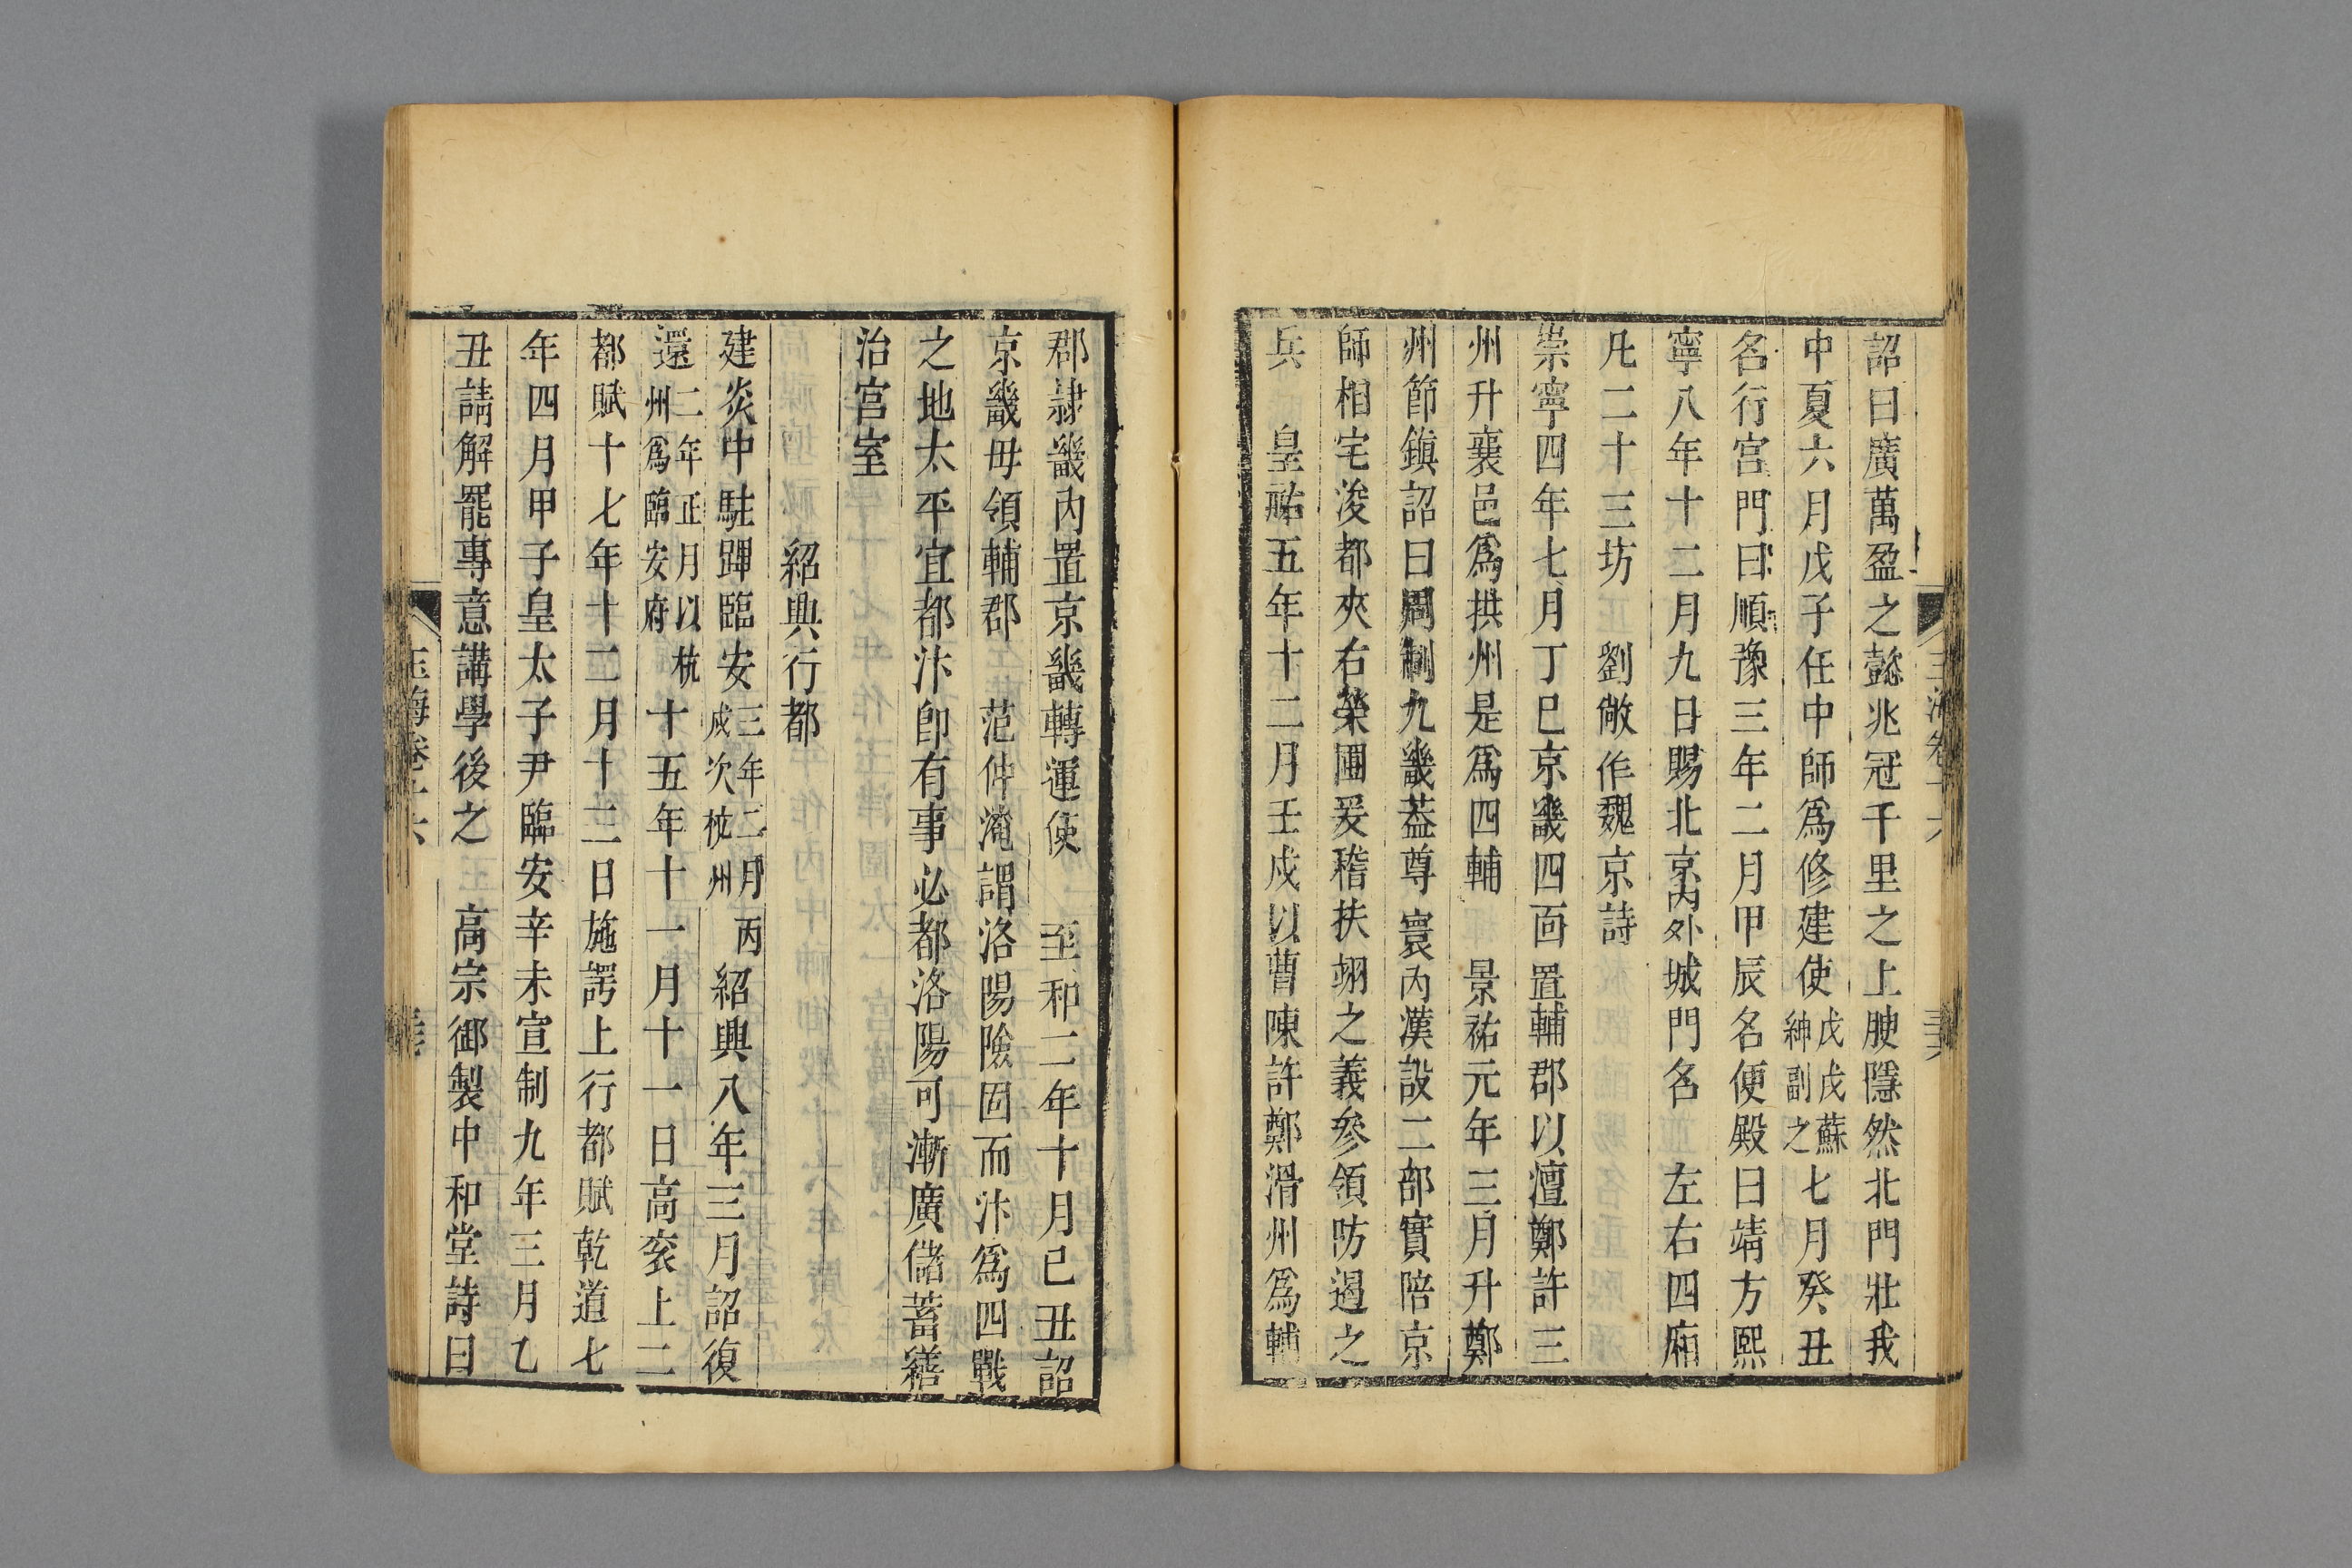 詔曰廣萬盈之懿兆冠千里之上腴隱然北門壯我
中夏六月戊子任中師爲修建使戊戌蘇紳副之七月癸丑
名行宮門曰順豫三年二月甲辰名便殿曰靖方熙
寧八年十二月九日賜北京內外城門名 左右四廂
凡二十三坊 劉敞作魏京詩
崇寧四年七月丁巳京畿四面置輔郡以澶鄭許三
州升襄邑爲拱州是爲四輔 景祐元年三月升鄭
州節鎮詔曰周制九畿葢尊寰內漢設二部實陪京
師相宅浚都夾右榮圃爰稽扶翊之義參領防遏之
兵 皇祐五年十二月壬戌以曹陳許鄭滑州爲輔
郡隷畿內置京畿轉運使 至和二年十月已丑詔
京畿毋領輔郡 范仲淹謂洛陽險固而汴爲四戰
之地太平宜都汴卽有事必都洛陽可漸廣儲蓄繕
治宮室
紹興行都
建炎中駐蹕臨安三年二月丙戌次杭州 紹興八年三月詔復
還二年正月以杭州爲臨安府十五年十一月十一日高衮上二
都賦十七年十二月十二日施諤上行都賦乾道七
年四月甲子皇太子尹臨安辛未宣制九年三月乙
丑請解罷專意講學後之 高宗御製中和堂詩曰
玉海卷十六